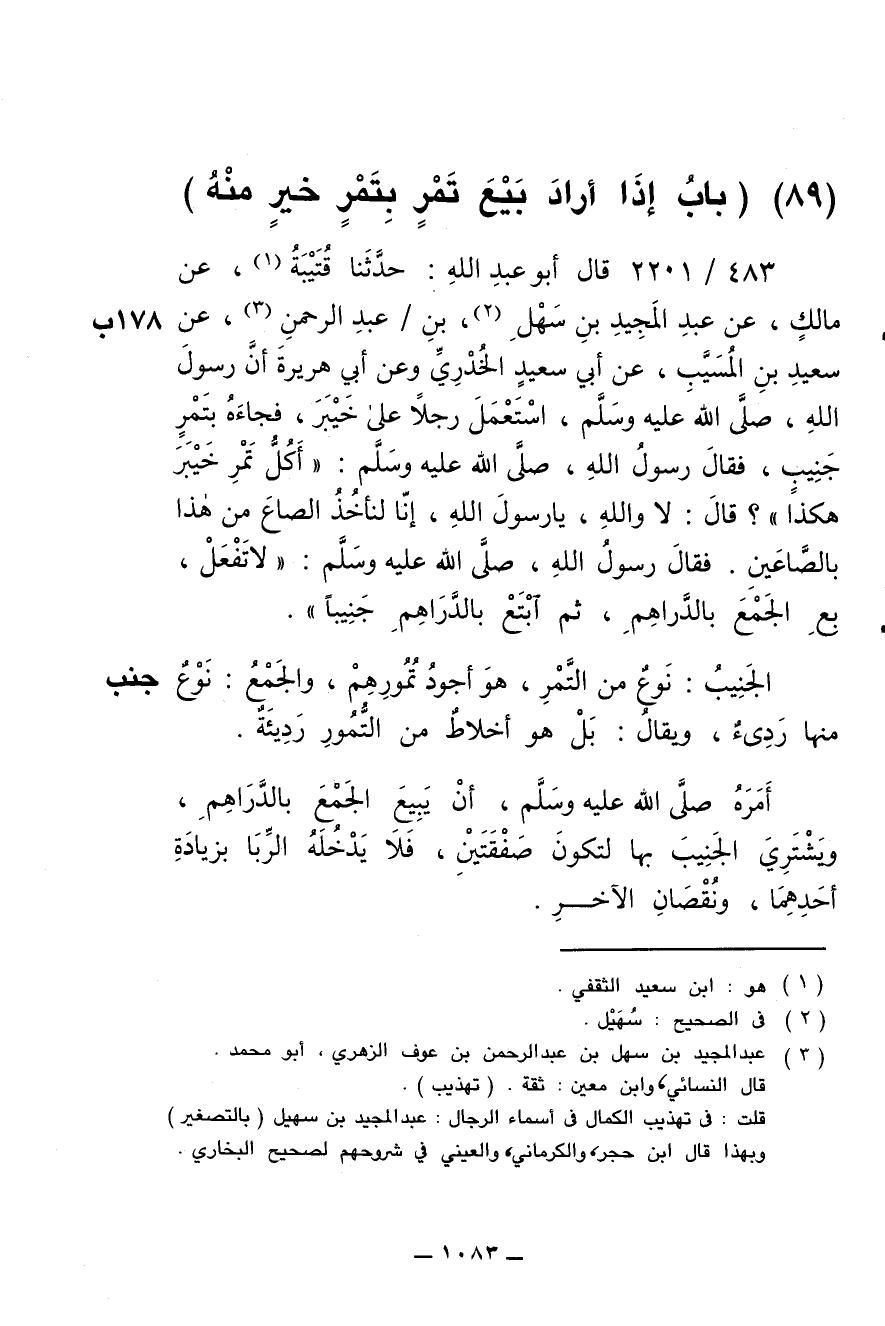 (٨٩) ( بابُ إذَا أرادَ بَيْعَ تَمْرٍ بِتَمْرٍ خيرٍ منْهُ )
٤٨٣ / ٢٢٠١ قال أبو عبدِ اللهِ : حدَّثَنا قُتَيْبَةُ (١) ، عن
مالكٍ ، عن عبدِ المَجِيدِ بنِ سَهْلٍ (٢)، بنِ / عبدِ الرحمنِ (٣) ، عن ١٧٨ب
سعيدِ بنِ المُسَيَّبِ ، عن أبي سعيدٍ الخُدْرِيِّ وعن أبي هريرةَ أنَّ رسولَ
اللهِ ، صلَّى الله عليه وسَلَّم ، اسْتَعْمَلَ رجلاً علىٰ خَيْبَرَ ، فجاءَهُ بتَمْرٍ
جَنِيبٍ ، فقالَ رسولُ اللهِ ، صلَّى الله عليه وسَلَّم : « أَكُلُّ تَمْرِ خَيْبَرَ
هكذا » ؟ قالَ : لا واللهِ ، يارسولَ اللهِ ، إنّا لنأخُذُ الصاعَ من هٰذا
بالصَّاعَينِ . فقالَ رسولُ اللهِ ، صلَّى الله عليه وسَلَّم : « لاتَفْعَلْ ،
بِعِ الجَمْعَ بالدَّراهِمِ ، ثم ٱبْتَعْ بالدَّرَاهِمِ جَنِيباً » .
الجَنِيبُ : نَوعٌ من التَّمْرِ ، هوَ أجودُ تُمُورِهِمْ ، والجَمْعُ : نَوْعٌ جنب
منها رَدِىءٌ ، ويقالُ : بَلْ هو أخلاطٌ من التُّمُورِ رَدِيئَةٌ .
أمَرَهُ صلَّى الله عليه وسَلَّم ، أنْ يَبِيعَ الجَمْعَ بالدَّرَاهِمِ ،
ويَشْتَرِيَ الجَنِيبَ بها لتكونَ صَفْقَتَيْنِ ، فَلَا يَدْخُلَهُ الرِّبَا بزيادَةِ
أحَدِهِمَا ، ونُقْصَانِ الآخــرِ .
(١) هو : ابن سعيد الثقفي .
(٢) فى الصحيح : سُهَيْل .
(٣) عبدالمجيد بن سهل بن عبدالرحمن بن عوف الزهري ، أبو محمد .
قال النسائي، وابن معين : ثقة . ( تهذيب ) .
قلت : فى تهذيب الكمال فى أسماء الرجال : عبدالمجيد بن سهيل ( بالتصغير )
وبهذا قال ابن حجر، والكرماني، والعيني في شروحهم لصحيح البخاري .
– ١٠٨٣ –